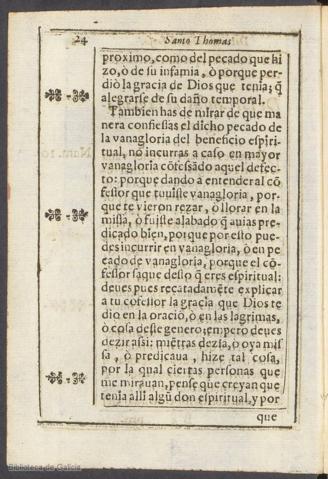 24 Santo Thomas
proximo, como del pecado que hi
zo, ò de su infamia, ò porque per-
diò la gracia de Dios que tenia; q̃
alegrarse de su daño temporal.
Tambien has de mirar de que ma
nera confiessas el dicho pecado de
la vanagloria del beneficio espiri-
tual, no incurras a caso en mayor
vanagloria cõfessãdo aquel defec-
to: porque dando a entender al cõ
fessor que tuuiste vanagloria, por-
que te vieron rezar, ò llorar en la
missa, ò fuiste alabado q̃ auias pre-
dicado bien, porque por esto pue-
des incurrir en vanagloria, ò en pe
cado de vanagloria, porque el cõ-
fessor saque desto q̃ eres espiritual:
deues pues recatadamẽte explicar
a tu cofessor la gracia que Dios te
dio en la oraciõ, ò en las lagrimas,
ò cosa deste genero; empero deues
dezir assi: miẽtras dezia, ò oya mis
sa, ò predicaua, hize tal cosa,
por la qual ciertas personas que
me mirauan, pense que creyan que
tenia alli algũ don espiritual, y por
que
Biblioteca de Galicia